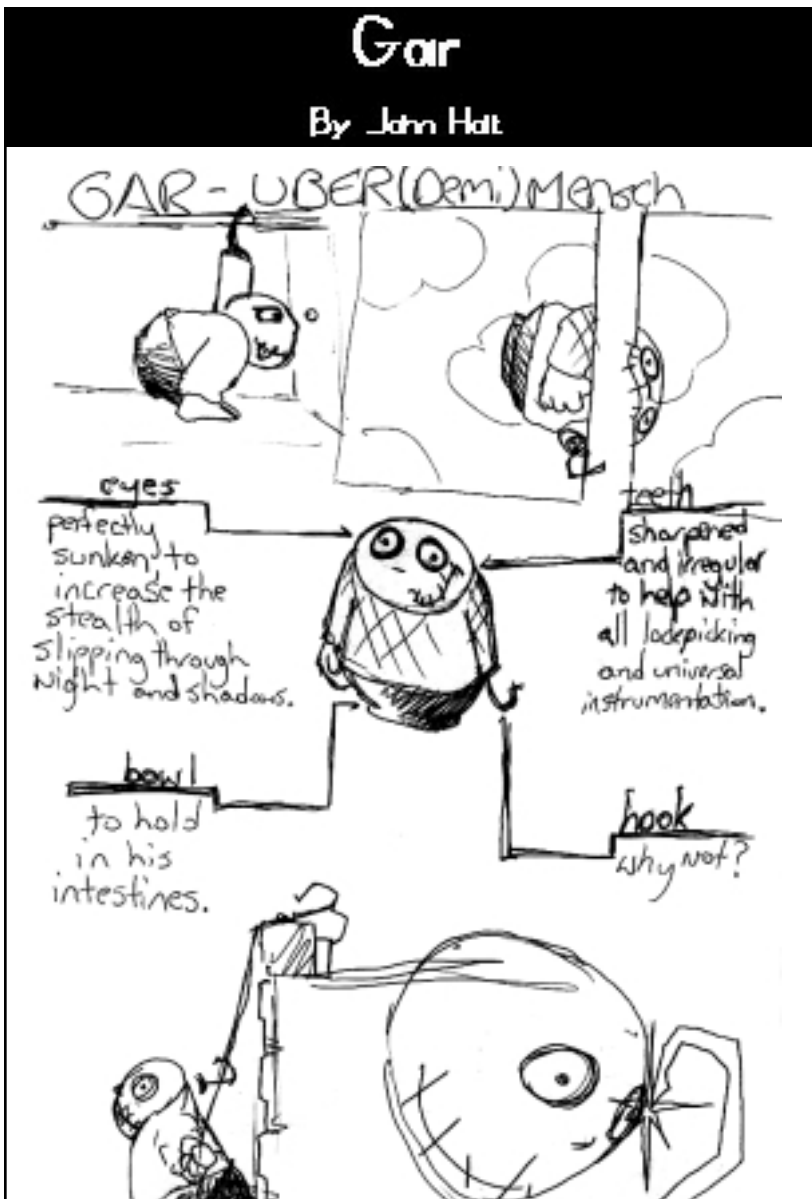 Gar
By John Holt
GAR - UBER(Demi)Mensch
eyes
perfectly
sunken, to
increase the
stealth of
slipping through
Night and shadows.
teeth
sharpened
and irregular
to help with
all lockpicking
and universal
instrumentation.
bowl
to hold
in his
intestines.
hook
why Not?